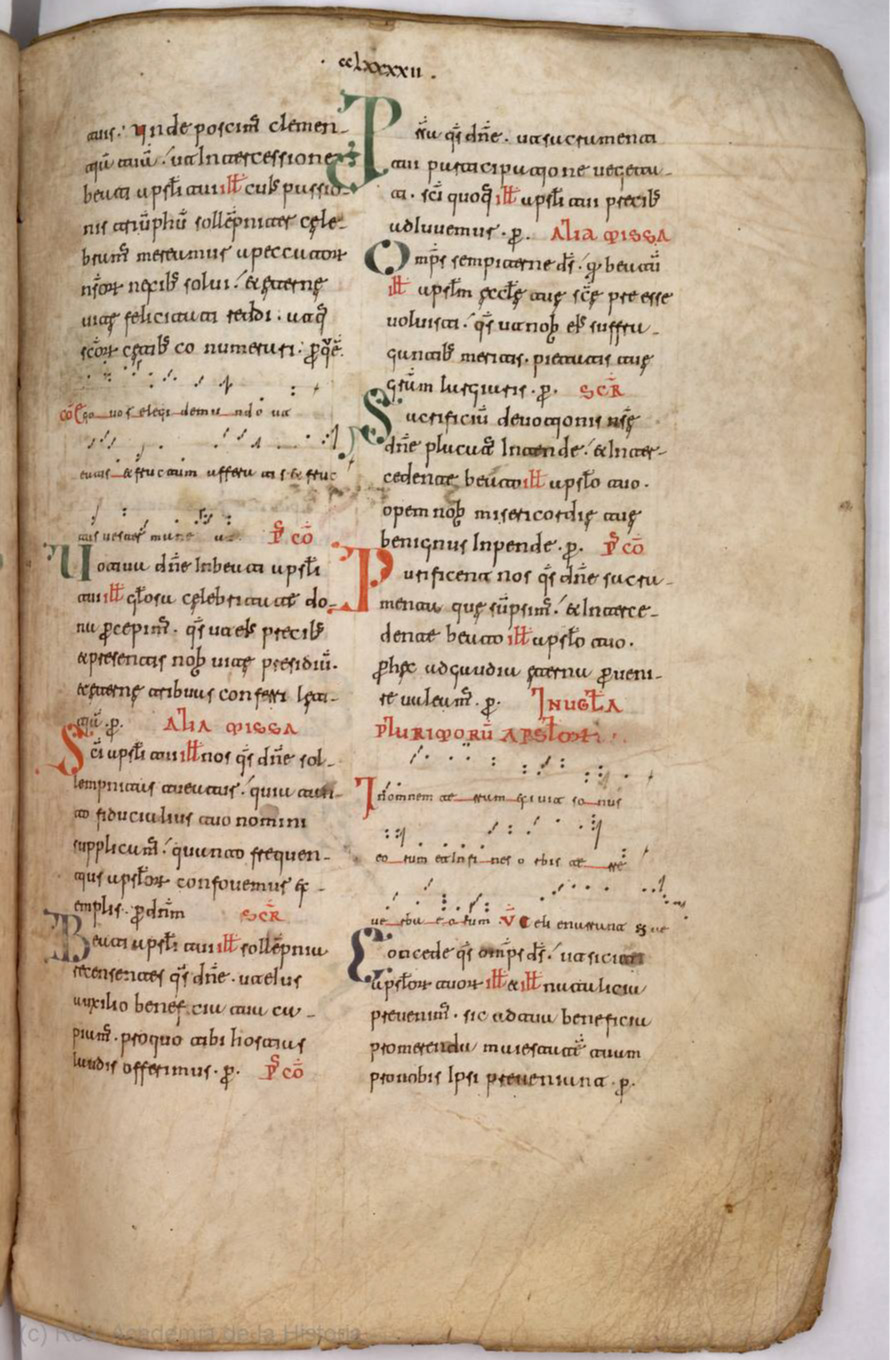 · cclxxxxii ·
tuis. Unde poscim̄ clemen-
tiā tuā. ut Intercessione
beati apsłi tui ill̄ cuius passio-
nis triūphū sollēpniter cęle-
bram̄ mereamur a peccator
nr̄or nexib; solui. & ęternę
uitę felicitati reddi. ut q̄
scōr cętib; co numerari. p̄ q̄ē.
cō Ego uos elegi de mu ndo ut
eatis & fructum affera tis & fruc
tus uester mane at p̄s cō
Uotiua dñe In beati apsłi
tui ill̄ głosa cęlebritate do-
na p̄cepim̄. qs̄ ut ei; precib;
& presentis nob uitę presidiū.
& ęternę tribuas conferri lęti-
tiā. p̄. Alia missa
Sc̄i apsłi tui ill̄ nos qs̄ dñe sol-
lempnitas tueatur. quia tan-
to fiducialius tuo nomini
supplicam̄. quanto frequen-
tius apsłor confouemur ex-
emplis. p̄ dn̄m scr̄
Beati apsłi tui ill̄ sollēpnia
recensentes qs̄ dñe. ut eius
auxilio beneficia tua ca-
piam̄. pro quo tibi hostias
laudis offerimus. p̄. p̄s cō
P̄sta qs̄ dñe. ut sacramenta
tui participatione uegeta-
ti. sc̄i quoq; ill̄ apsłi tui precib;
adiuuemur. p̄. Alia missa
Omp̄s sempiterne ds̄. q̄ beatū
ill̄ apsłm ęcclę tuę scę preesse
uoluisti. qs̄ ut nob ei; suffra-
gantib; meritis. pietatis tuę
gr̄am largiaris. p̄. scr̄
Sacrificiū deuotionis nrę
dñe placat; Intende. & Inter-
cedente beato ill̄ apsło tuo.
opem nob misericordię tuę
benignus Inpende. p̄. p̄s cō
Purificent nos qs̄ dñe sacra-
menta quę sūpsim̄. & Interce-
dente beato ill̄ apsło tuo.
p̄ hęc ad gaudia ęterna p̄ueni-
re ualeam̄. p̄. In ugła
plurimorū apsłor.
In omnem te rram exiuit so nus
eo rum et In fi nes o rbis te rrę
ue rba e o rum V̄ Celi enarrant
Concede qs̄ omp̄s ds̄. ut sicut
apsłor tuor ill̄ & ill̄ natalicia
preuenim̄. sic ad tua beneficia
promerenda maiestatē tuam
pro nobis Ipsi preueniant. p̄.
(c) Real Academia de la Historia